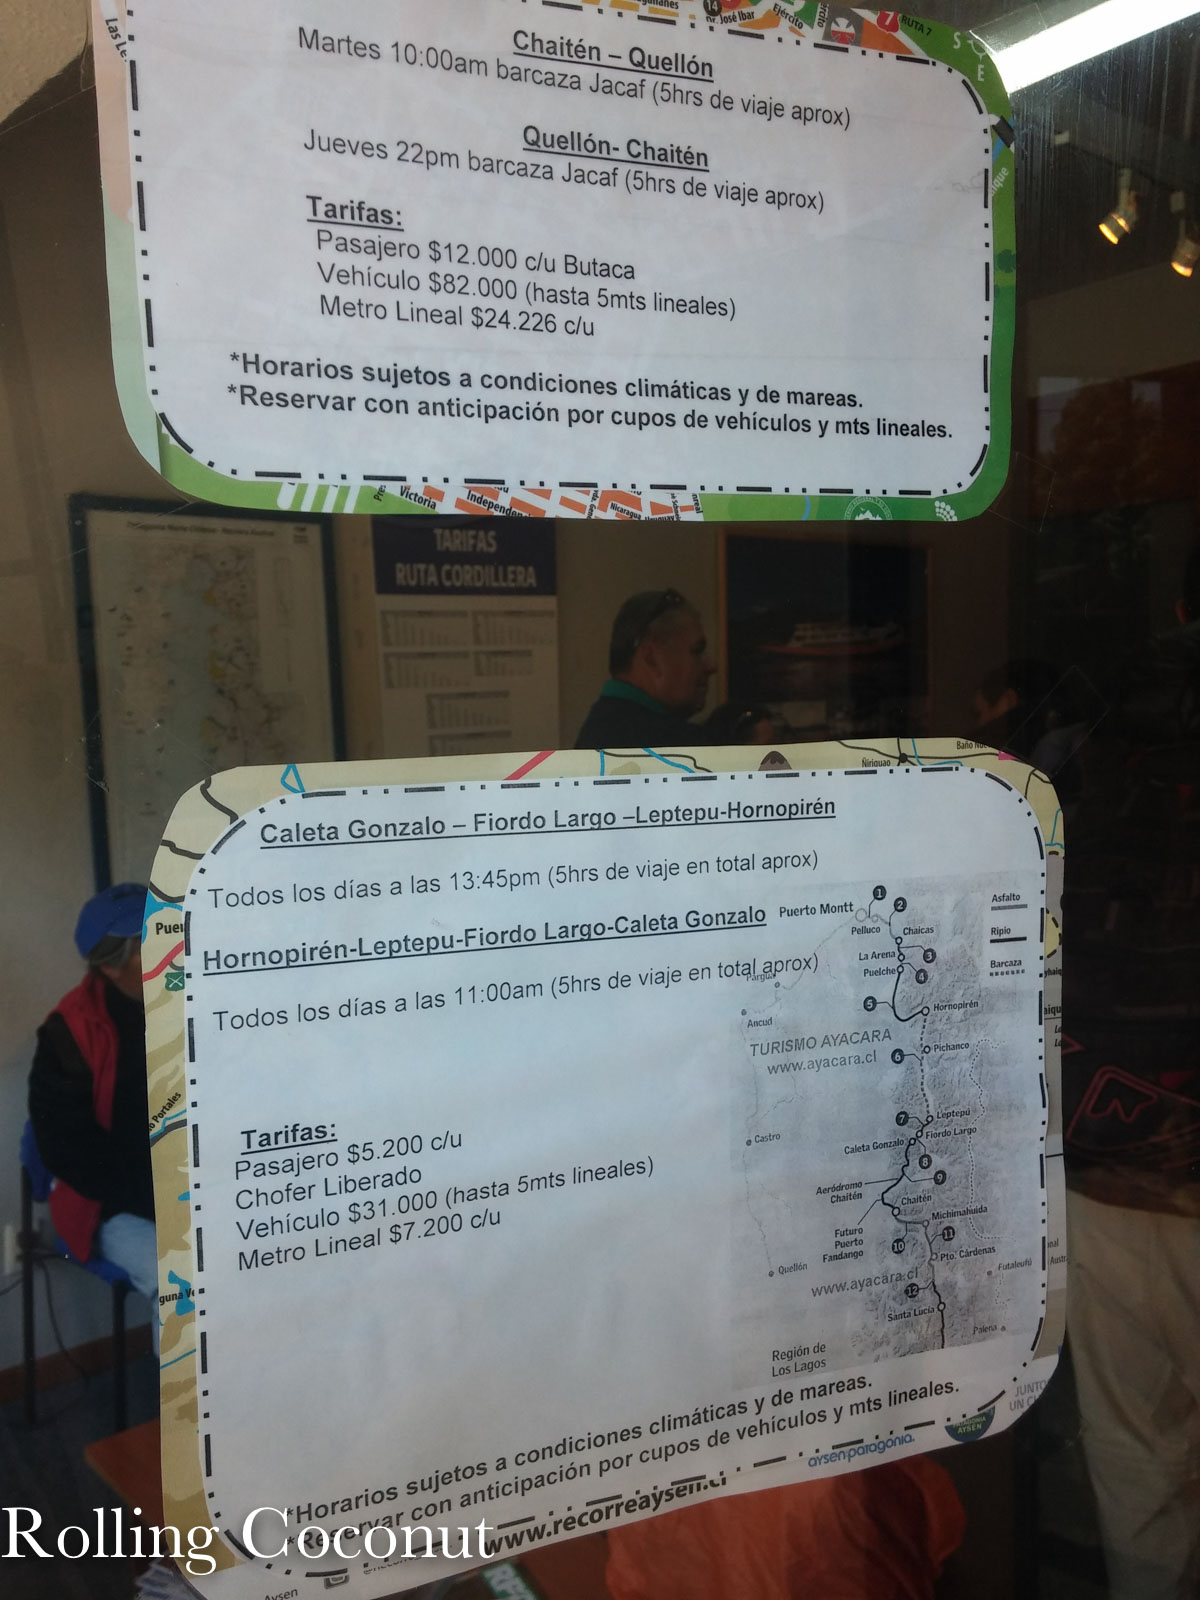 Las
14
Av. José Ibar
Ejército
7
RUTA 7
S
E
Chaitén – Quellón
Martes 10:00am barcaza Jacaf (5hrs de viaje aprox)
Quellón- Chaitén
Jueves 22pm barcaza Jacaf (5hrs de viaje aprox)
Tarifas:
Pasajero $12.000 c/u Butaca
Vehículo $82.000 (hasta 5mts lineales)
Metro Lineal $24.226 c/u
*Horarios sujetos a condiciones climáticas y de mareas.
*Reservar con anticipación por cupos de vehículos y mts lineales.
Victoria
Independen
Nicaragua
TARIFAS
RUTA CORDILLERA
Baño
Ñiriguao
Caleta Gonzalo – Fiordo Largo –Leptepu-Hornopirén
Todos los días a las 13:45pm (5hrs de viaje en total aprox)
Hornopirén-Leptepu-Fiordo Largo-Caleta Gonzalo
Todos los días a las 11:00am (5hrs de viaje en total aprox)
Puerto Montt
1
2
Pelluco
Chaicas
La Arena
3
Puelche
4
5
Hornopirén
Pargua
Ancud
Asfalto
Ripio
Barcaza
TURISMO AYACARA
www.ayacara.cl
6
Pichanco
7
Leptepú
Castro
Caleta Gonzalo
Fiordo Largo
8
9
Aeródromo
Chaitén
Chaitén
Futuro
Puerto
Fandango
Michimahuida
10
11
Pto. Cárdenas
Quellón
Futaleufú
www.ayacara.cl
12
Santa Lucía
Palena
Región de
Los Lagos
Tarifas:
Pasajero $5.200 c/u
Chofer Liberado
Vehículo $31.000 (hasta 5mts lineales)
Metro Lineal $7.200 c/u
*Horarios sujetos a condiciones climáticas y de mareas.
*Reservar con anticipación por cupos de vehículos y mts lineales.
Portales
guna
JUNTO
UN
AYSEN
aysenpatagonia.
www.recorreaysen.cl
Aysen
Rolling Coconut